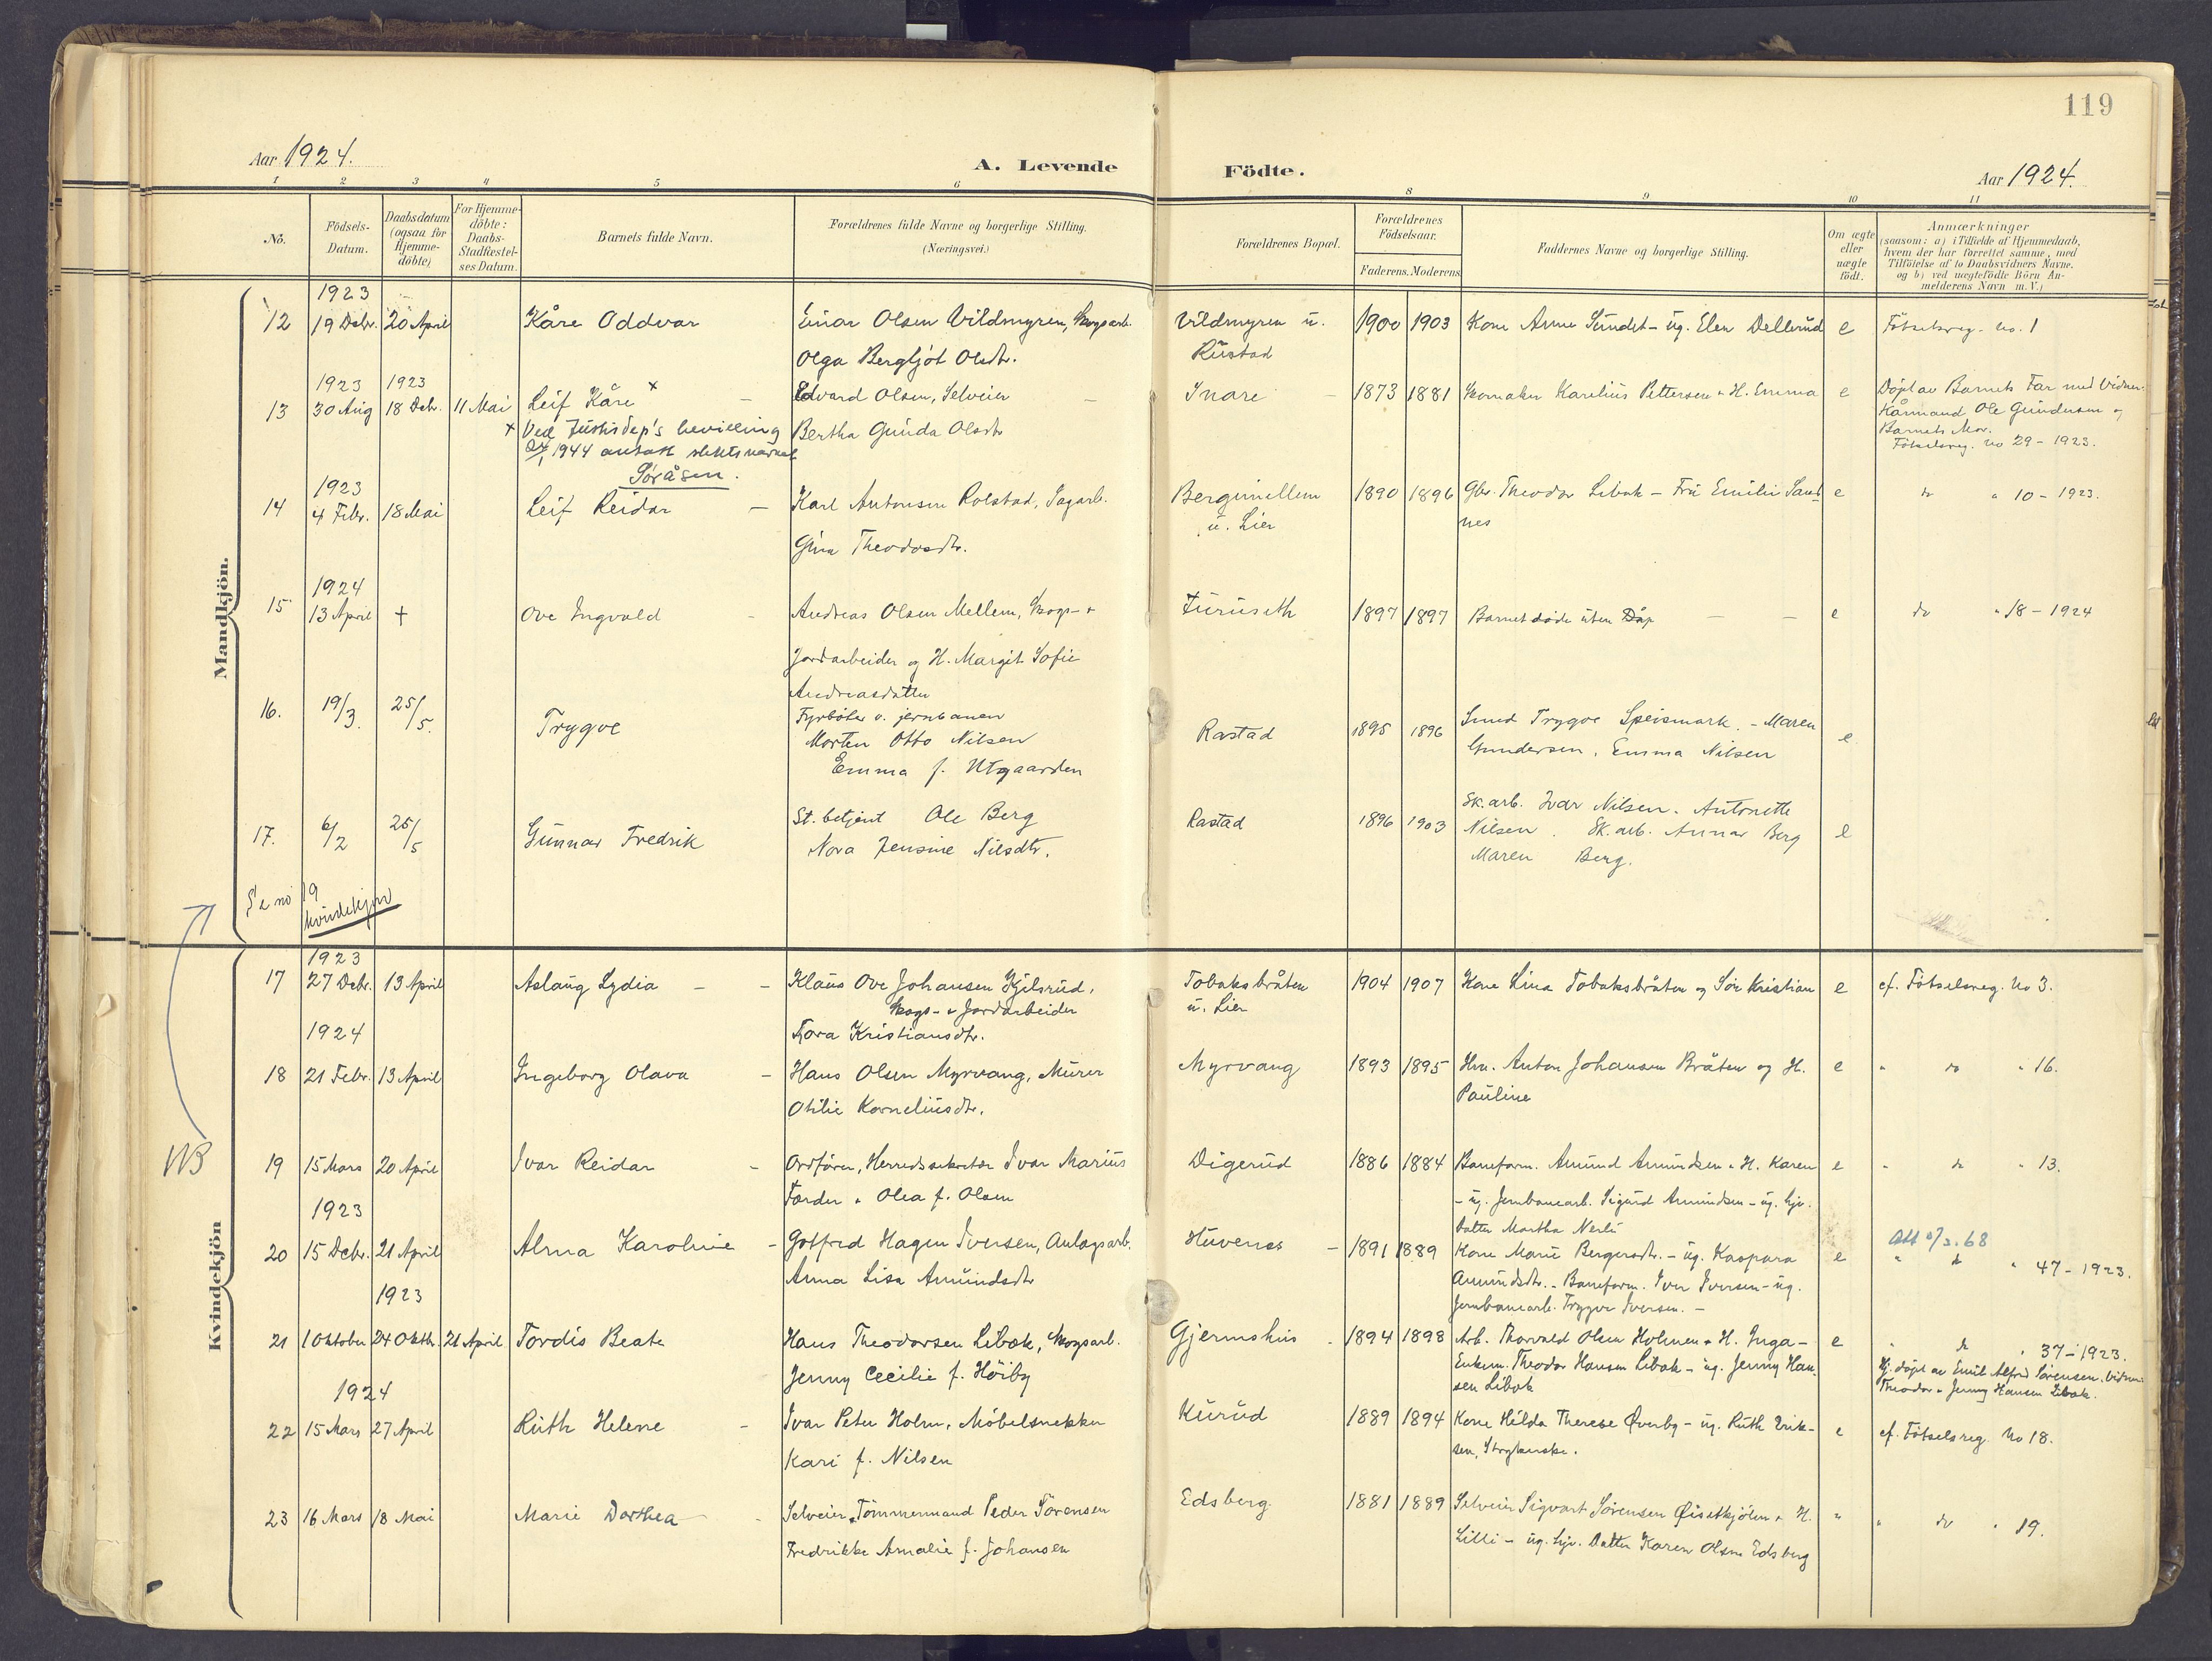 119
Aar 1924.
A. Levende Födte.
Aar 1924.
1 2 3 4 5 6 8 9 10 11
No.
Födsels-Datum.
Daabsdatum (ogsaa for Hjemme-döbte)
For Hjemme-döbte: Daabs-Stadfæstel-ses Datum.
Barnets fulde Navn.
Forældrenes fulde Navne og borgerlige Stilling. (Næringsvei.)
Forældrenes Bopæl.
Forældrenes Födselsaar.
Faderens. Moderens.
Faddernes Navne og borgerlige Stilling.
Om ægte eller uægte födt.
Anmærkninger
(saasom: a) i Tilfælde af Hjemmedaab,
hvem der har forrettet samme, med
Tilföielse af to Daabsvidners Navne.
og b) ved uægtefödte Börn An-
melderens Navn m. V.)
Mandkjön.
1923
12 19 Debr. 20 April Kåre Oddvar Einar Olsen Vildmyren, Skogsarb. Vildmyren u. 1900 1903 Kone Anne Sundet - ug. Elen Dellerud e Fötselsreg. No. 1
Olga Bergljot Olsdtr. Rustad
1923 1923
13 30 Aug 18 Debr. 11 Mai Leif Kåre x Edvard Olsen, Selveier Snare 1873 1881 Skomaker Karelius Pettersen + H. Emma e Döpt av Barnets Far med Vidner:
x Ved Justisdep's bevilling Bertha Gunda Olsdtr Kårmand Ole Gundersen og
1944 antatt slektsnavnet Barnets Mor.
Söråsen. Fötselsreg. No 29 - 1923.
1923
14 4 Febr. 18 Mai Leif Reidar Karl Antonsen Rolstad, Sagarb. Bergimellem 1890 1896 Gbr. Theodor Libak - Fru Emilie Sand e do " 10 - 1923.
Gina Theodosdtr. u. Lier nes
1924
15 13 April + Ove Ingvald Andreas Olsen Mellem, Skogs- + Furuseth 1897 1897 Barnet döde uten Dåp e do " 18 - 1924
Jordarbeider og H. Margit Sofie
Andreasdatter
16. 19/3. 25/5. Trygve Fyrböter v. jernbanen Rastad 1895 1896 Smed Trygve Speismark. - Maren e
Morten Otto Nilsen Gundersen, Emma Nilsen
Emma f. Utgaarden
17. 6/2 25/5 Gunnar Fredrik St. betjent Ole Berg Rastad 1896 1903 Sk. arb. Ivar Nilsen. Antonette e
Nora Jensine Nilsdtr. Nilsen. Sk. arb. Annar Berg
Maren Berg.
Se no 19
kvindekjön
Kvindekjön
1923
17 27 Debr. 13 April Aslaug Lydia Klaus Ove Johansen Kjilsrud, Tobaksbråten 1904 1907 Kone Lina Tobaksbråten og Sön Kristian e cf. Fötselsreg. No 3.
Skogs- + Jordarbeider u. Lier
1924 Tora Kristiansdtr.
18 21 Febr. 13 April Ingeborg Olava Hans Olsen Myrvang, Murer Myrvang 1893 1895 Hm. Anton Johansen Bråten og H. e " do " 16.
Otilie Korneliusdtr. Pauline
NB 19 15 Mars 20 April Ivar Reidar Ordförer, Herredssekretær Ivar Marius Digerud 1886 1884 Baneform. Amund Amundsen + H. Karen e " do " 13.
Tordor + Olea f. Olsen - ug. Jernbanearb. Sigurd Amundsen - ug. hjv.
datter Martha Nerli
1923
20 15 Debr. 21 April Alma Karoline Gotfred Hagen Iversen, Anlægsarb. Huvenes 1891 1889 Kone Marie Bergersdtr. - ug. Kaspara e " do " 47 - 1923.
Anna Lisa Amundsdtr Amundsdtr. - Baneform. Iver Iversen - ug.
Jernbanearb. Trygve Iversen. -
1923
21 1 Oktober 24 Oktbr. 21 April Tordis Beate Hans Theodorsen Libak, Skogsarb. Gjermshus 1894 1898 Arb. Thorvald Olsen Holmen + H. Inga - e " do " 37 - 1923.
Jenny Cecilie f. Höiby Enkem. Theodor Hansen Libak - ug. Jenny Han- Hj. döpt av Emil Alfred Sörensen. Vidner:
sen Libak Theodor + Jenny Hansen Libak.
1924
22 15 Mars 27 April Ruth Helene Ivar Peter Holm, Möbelsnekker Kurud 1889 1894 Kone Hilda Therese Øverby - ug. Ruth Erik- e cf. Fötselsreg No 18.
Kari f. Nilsen sen, Strykerske.
23 16 Mars 18 Mai Marie Dorthea Selveier + Tömmermand Peder Sörensen Edsberg 1881 1889 Selveier Sigvart Sörensen Øisetkjölen + H. " " do " 19.
Fredrikke Amalie f. Johansen Lilli - ug. hjv. Datter Karen Olsen Edsberg